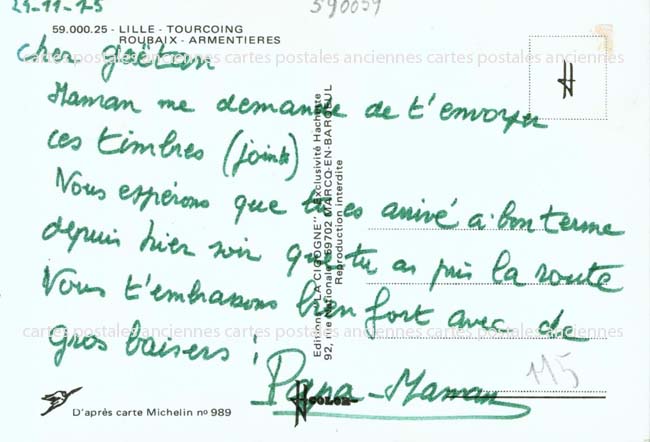 21-11-75
590059
59.000.25 - LILLE - TOURCOING
ROUBAIX - ARMENTIERES
cher gaëtan
Maman me demande de t'envoyer
ces timbres (joints)
Nous espérons que tu es arrivé à bon terme
depuis hier soir que tu as pris la route
Nous t'embrassons bien fort avec de
gros baisers !
Papa - Maman
115
Editions "LA CIGOGNE" Exclusivité Hachette
92, rue Nationale 59702 MARCQ-EN-BAROEUL
Reproduction interdite
COLOR
D'après carte Michelin nº 989
cartes postales anciennes cartes postales anciennes cartes postales anciennes
cartes postales anciennes cartes postales anciennes cartes postales anciennes
cartes postales anciennes cartes postales anciennes cartes postales anciennes